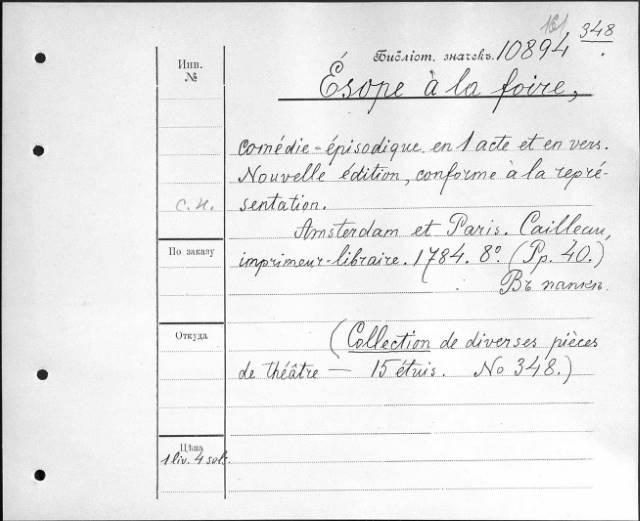 161 348
Библіот. значекъ. 10894
Инв.
№
Ésope à la foire,
comédie-épisodique en 1 acte et en vers.
Nouvelle édition, conforme à la repré-
с. н. sentation.
Amsterdam et Paris. Cailleau,
По заказу imprimeur-libraire. 1784. 8º. (Pp. 40.)
Въ папкѣ.
Откуда (Collection de diverses pièces
de théâtre — 15 étuis. No 348.)
Цѣна
1 liv. 4 sols.